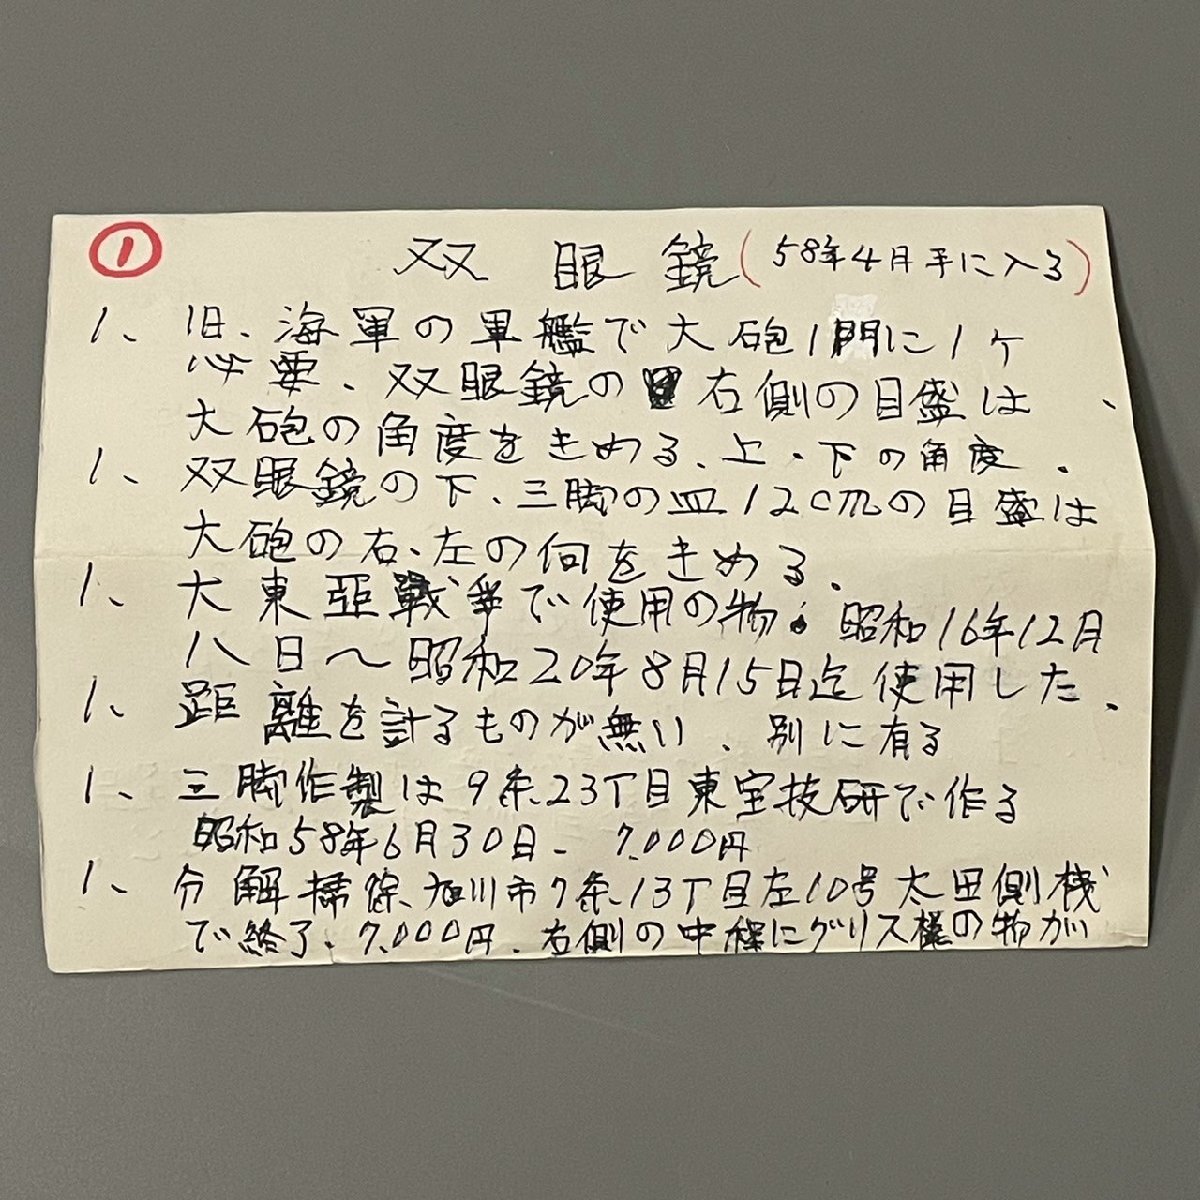 ① 双眼鏡(58年4月手に入る)
1、旧、海軍の軍艦で大砲1門に1ケ
必要、双眼鏡の右側の目盛は、
大砲の角度をきめる、上、下の角度、
1、双眼鏡の下、三脚の皿12cmの目盛は
大砲の右、左の何をきめる、
1、大東亜戦争で使用の物。昭和16年12月
八日～昭和20年8月15日迄使用した、
1、距離を計るものが無い、別に有る
1、三脚作製は9条、23丁目東宝技研で作る
昭和58年6月30日-7,000円
1、分解掃除、旭川市7条、13丁目左10号太田側機
で終了、7,000円、右側の中程にグリス様の物が